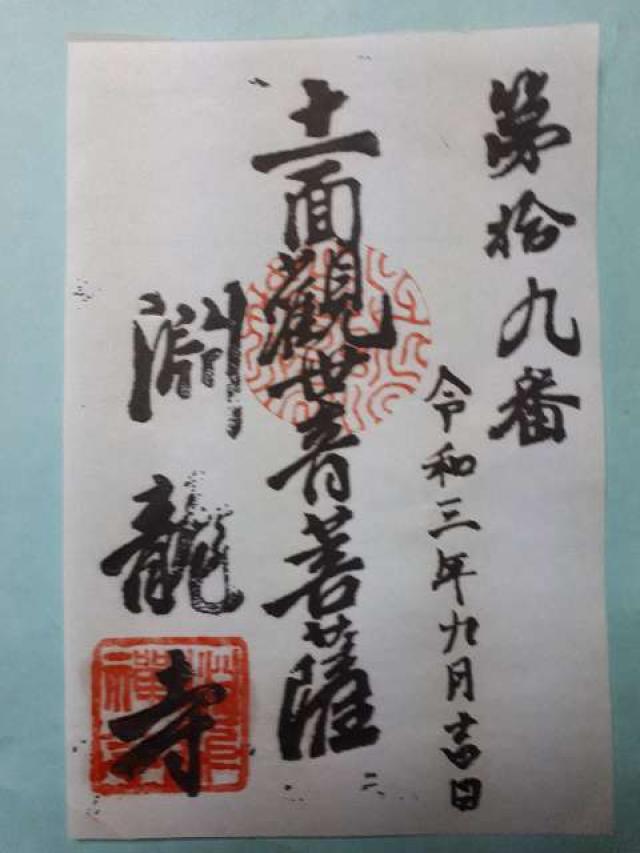 第拾九番
令和三年九月吉日
十一面觀世音菩薩
淵龍寺